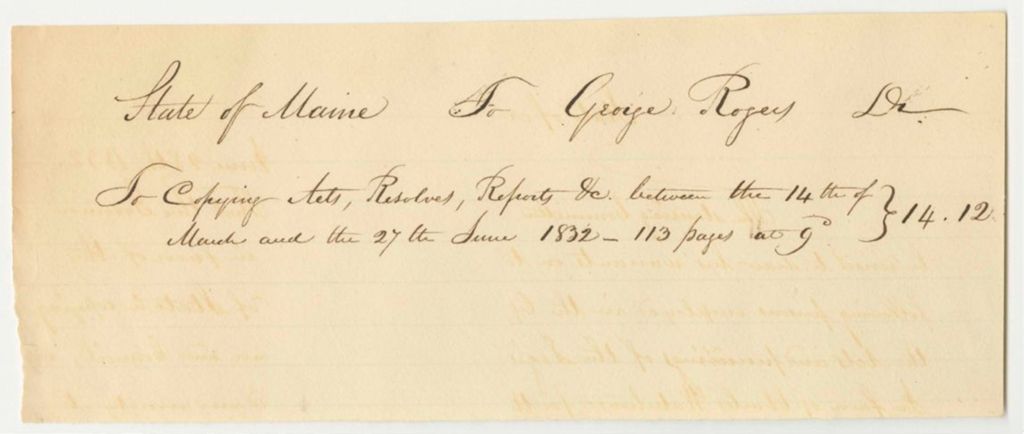 State of Maine To George Rogers Dr
To Copying Acts, Resolves, Reports &c. between the 14th of } 14.12
March and the 27th June 1832 - 113 pages at 9d